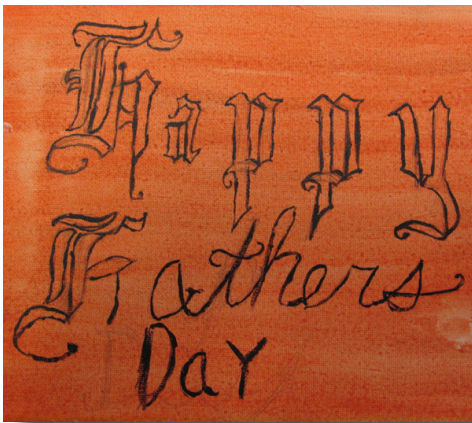 Happy
Fathers
Day